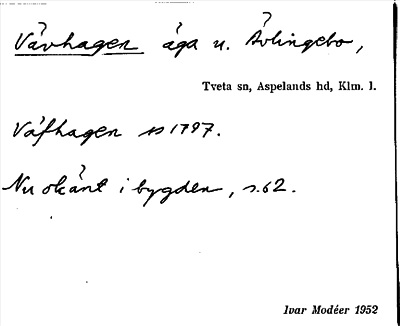 Våvhagen åga u. Övlingebo,
Tveta sn, Aspelands hd, Klm. l.
Våfhagen 1797.
Nu okänt i bygden, s.62.
Ivar Modéer 1952